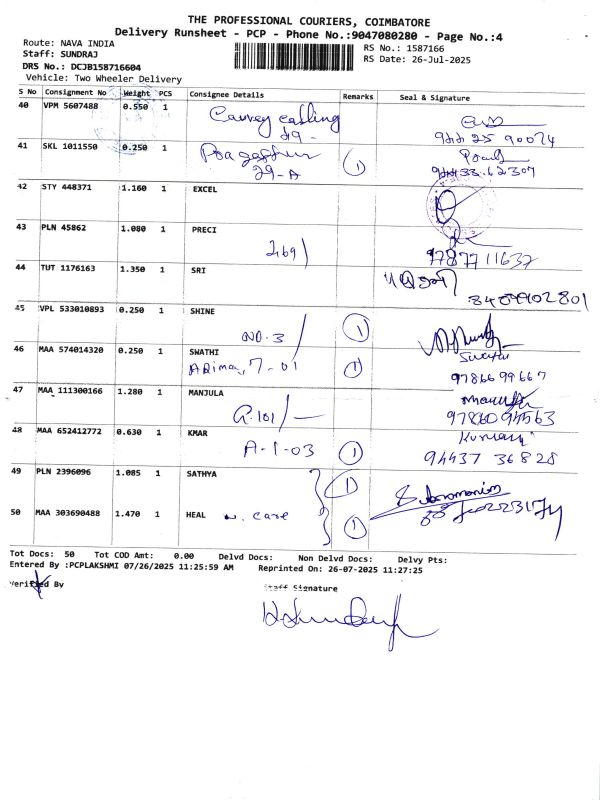 THE PROFESSIONAL COURIERS, COIMBATORE
Delivery Runsheet - PCP - Phone No.:9047080280 - Page No.:4
Route: NAVA INDIA
Staff: SUNDRAJ
DRS No.: DCJB158716604
Vehicle: Two Wheeler Delivery
RS No.: 1587166
RS Date: 26-Jul-2025
S No Consignment No Weight PCS Consignee Details Remarks Seal & Signature
40 VPM 5607488 0.550 1
41 SKL 1011550 0.250 1 29-A 1
42 STY 448371 1.160 1 EXCEL
43 PLN 45862 1.080 1 PRECI
269 97877 11637
44 TUT 1176163 1.350 1 SRI
8489902801
45 VPL 533010893 0.250 1 SHINE
NO. 3 1
46 MAA 574014320 0.250 1 SWATHI
7-01 1 Swathi
97866 99667
47 MAA 111300166 1.280 1 MANJULA
G.101
48 MAA 652412772 0.630 1 KMAR
A-1-03 1 94437 36828
49 PLN 2396096 1.085 1 SATHYA 1
50 MAA 303690488 1.470 1 HEAL n. care 1
Tot Docs: 50 Tot COD Amt: 0.00 Delvd Docs: Non Delvd Docs: Delvy Pts:
Entered By :PCPLAKSHMI 07/26/2025 11:25:59 AM Reprinted On: 26-07-2025 11:27:25
Verified By Staff Signature